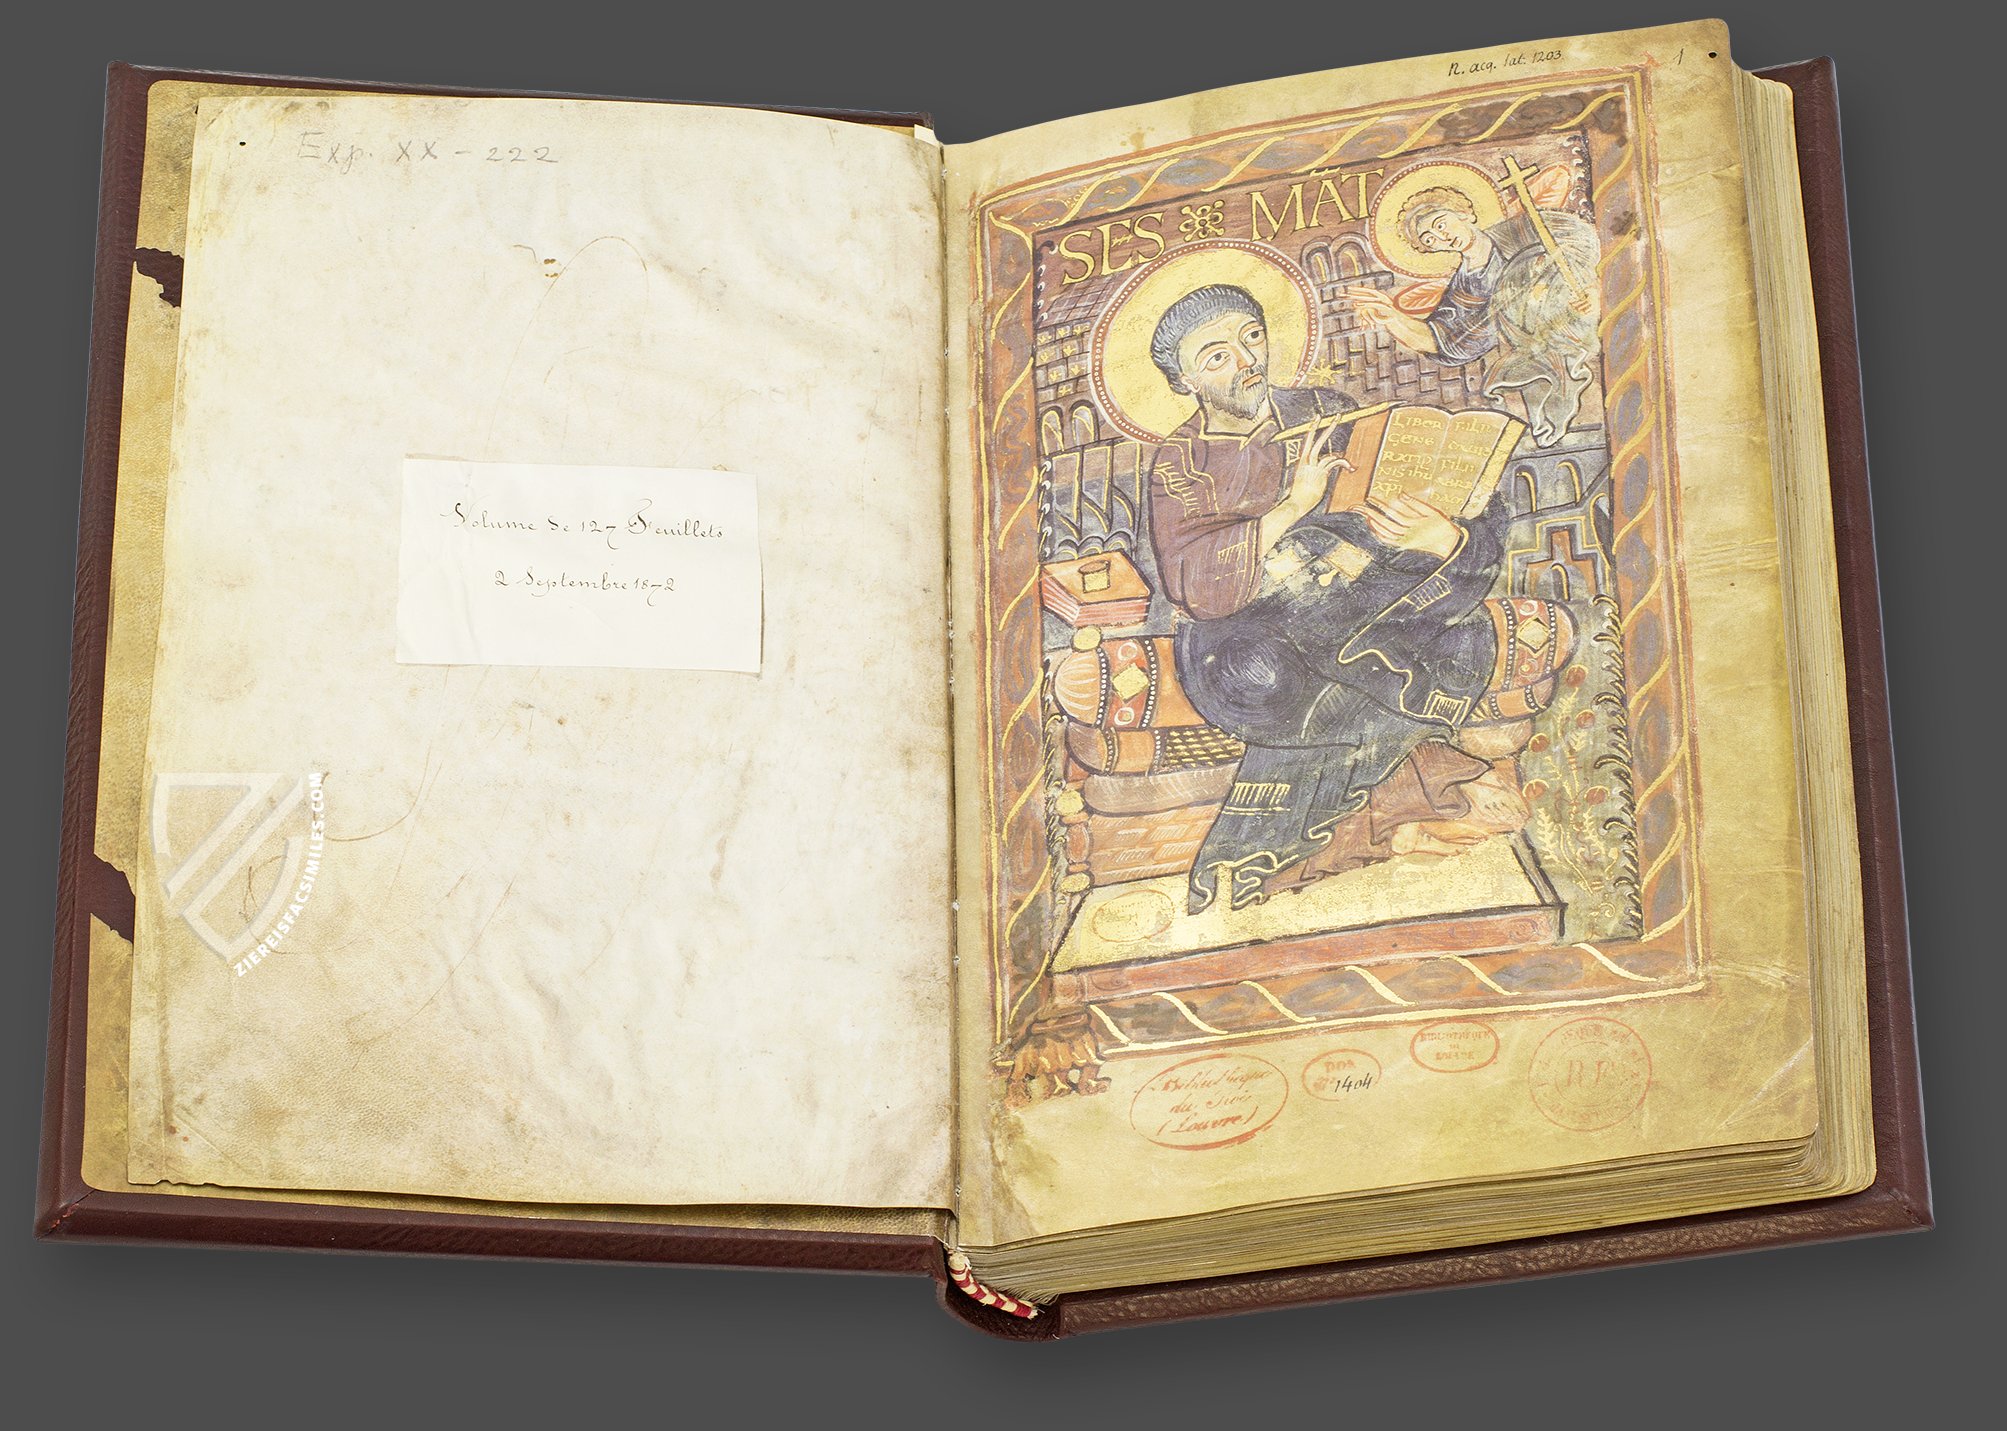 Exp. XX - 222
Volume de 127 Feuillets
2 Septembre 1872
ZIEREISFACSIMILES.COM
N. acq. lat. 1203
1
SES MAT
LIBER
GENE
RATIO
NIS IHU
XPI
FILII
FILII
Bibliothèque
du Roi
(Louvre)
1404
BIBLIOTHEQUE